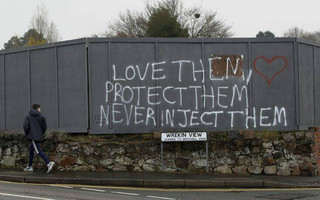 LOVE THEM,
PROTECT THEM
NEVER INJECT THEM
WREKIN VIEW